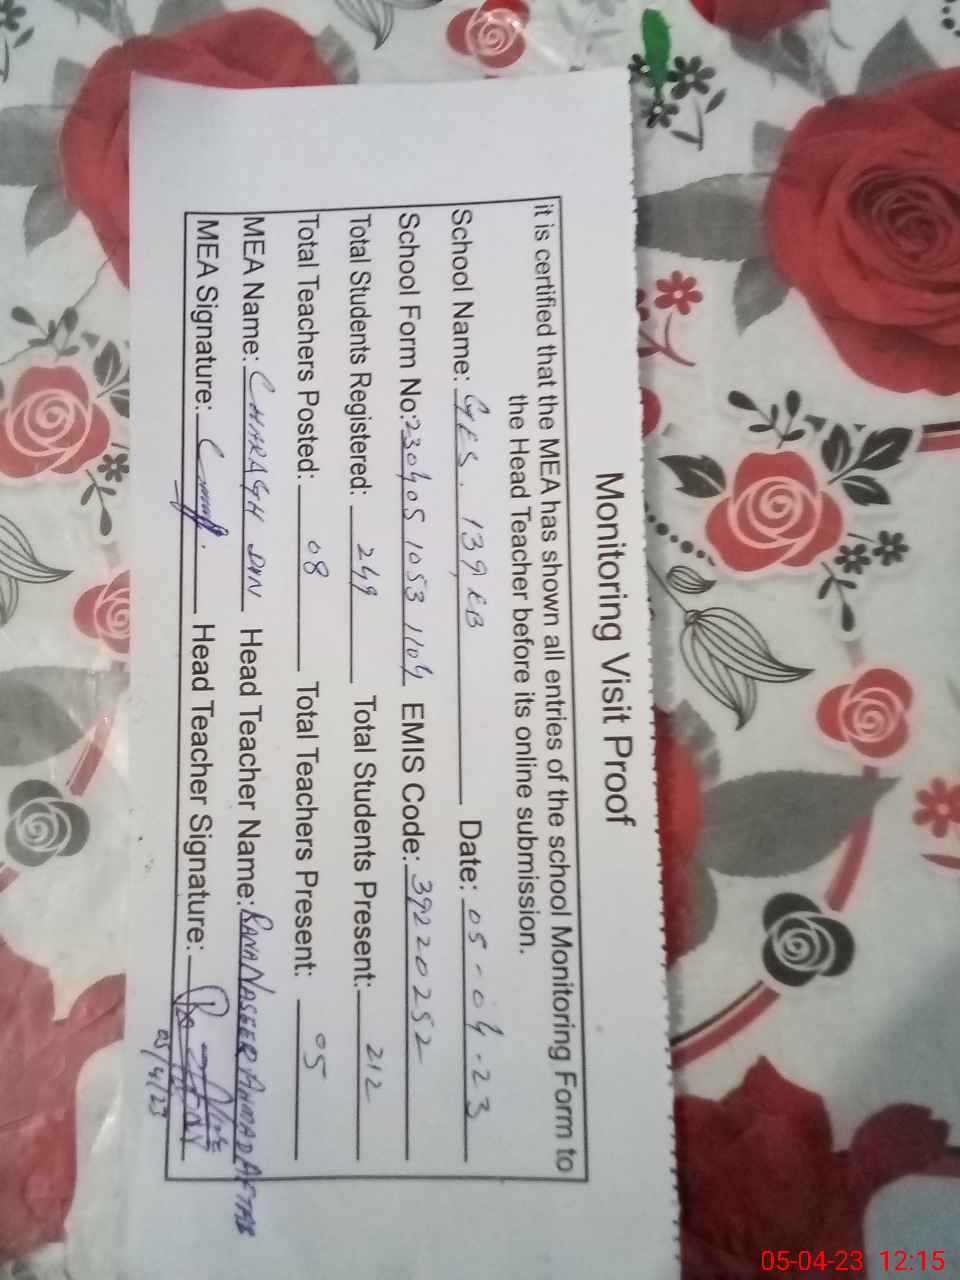 Monitoring Visit Proof
it is certified that the MEA has shown all entries of the school Monitoring Form to
the Head Teacher before its online submission.
School Name: GES. 139 RB Date: 05-04-23
School Form No: 230405 1053 1104 EMIS Code: 39220252
Total Students Registered: 249 Total Students Present: 212
Total Teachers Posted: 08 Total Teachers Present: 05
MEA Name: CHARAGH DIN Head Teacher Name: RANA NASEER AHMAD AFTAB
MEA Signature: Head Teacher Signature:
05/4/23
05-04-23 12:15